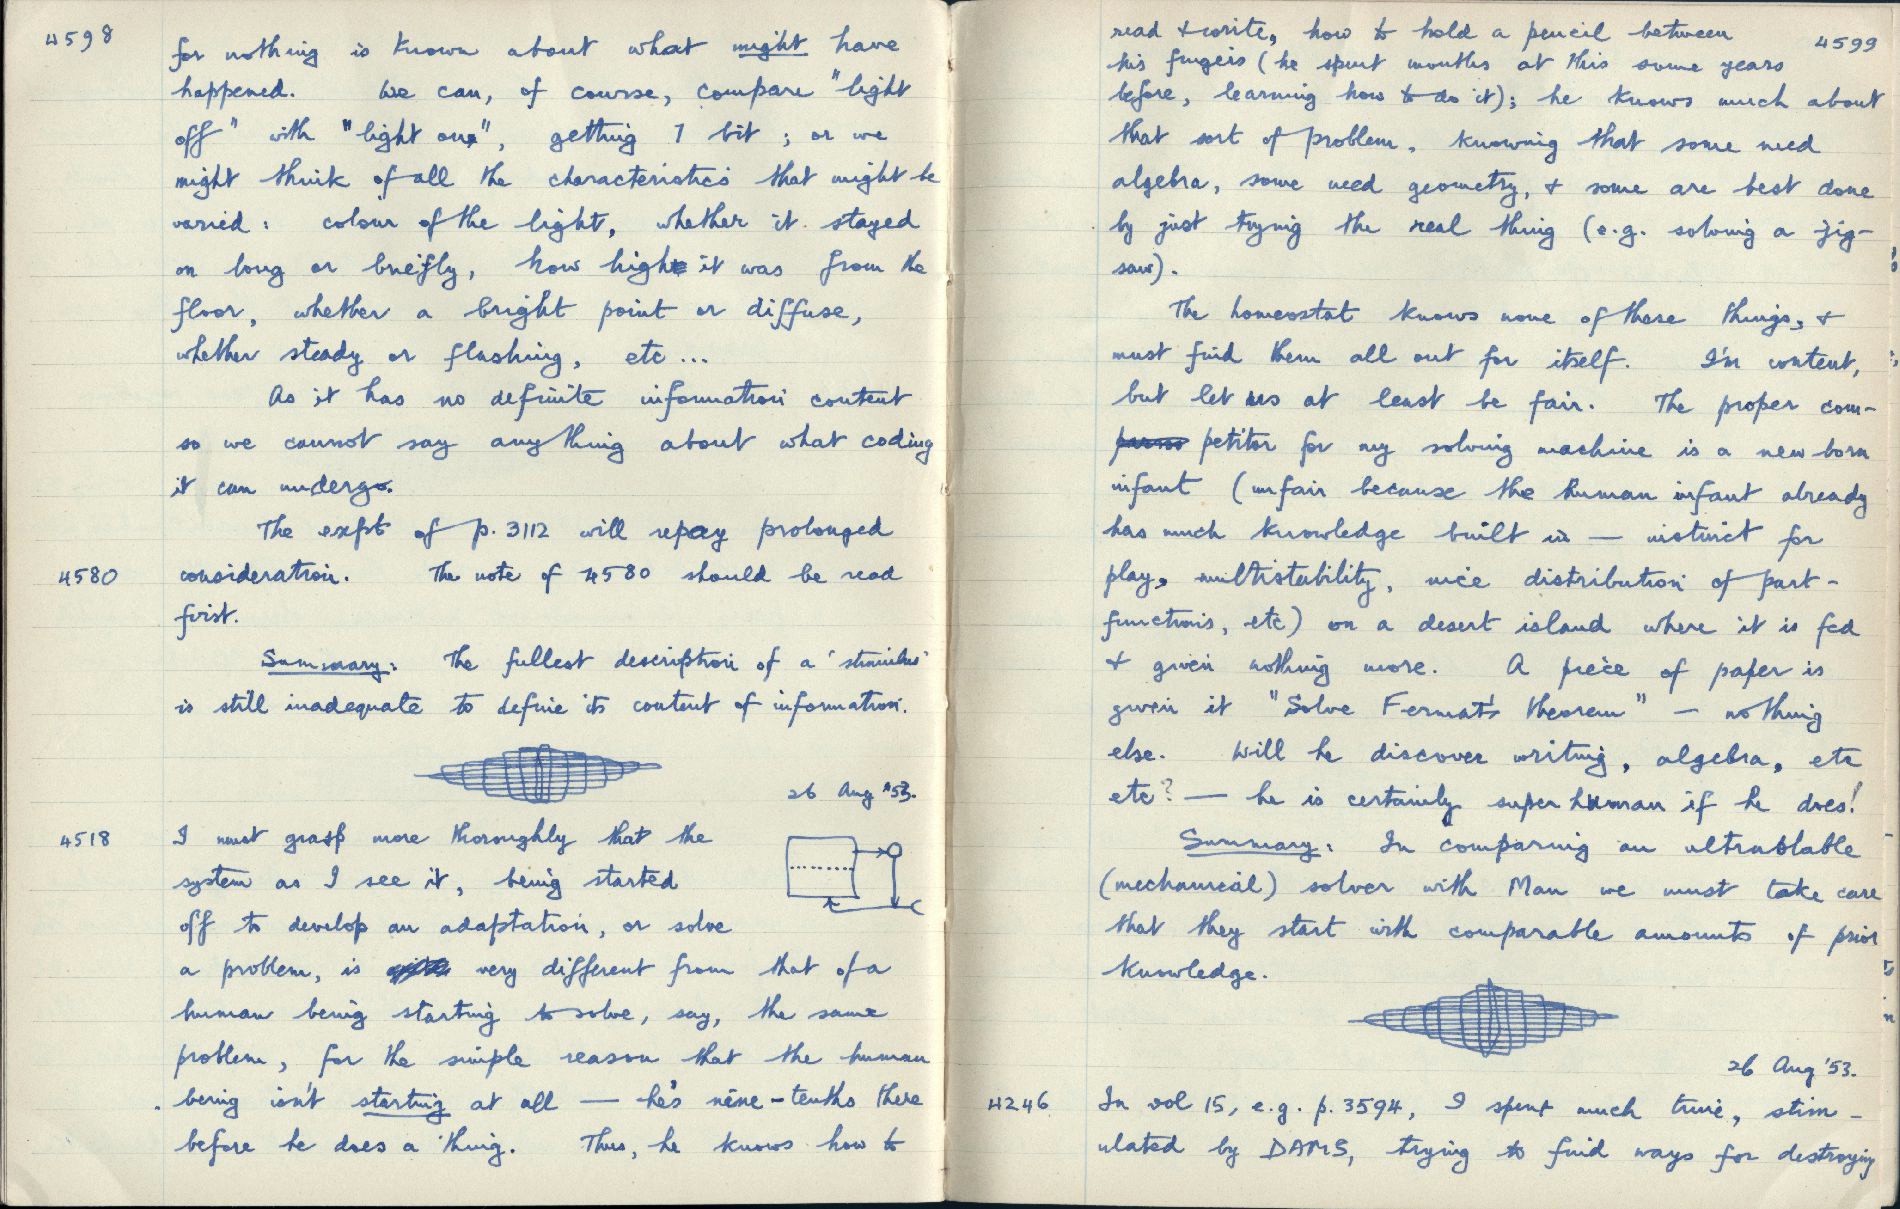 4598
for nothing is known about what might have
happened. We can, of course, compare "light
off" with "light on", getting 1 bit ; or we
might think of all the characteristics that might be
varied : colour of the light, whether it stayed
on long or briefly, how high it was from the
floor, whether a bright point or diffuse,
whether steady or flashing, etc ...
As it has no definite information content
so we cannot say anything about what coding
it can undergo.
The expt of p. 3112 will repay prolonged
4580 consideration. The note of 4580 should be read
first.
Summary: The fullest description of a 'stimulus'
is still inadequate to define its content of information.
26 Aug '53.
4518 I must grasp more thoroughly that the
system as I see it, being started
off to develop an adaptation, or solve
a problem, is very different from that of a
human being starting to solve, say, the same
problem, for the simple reason that the human
being isn't starting at all — he's nine-tenths there
before he does a thing. Thus, he knows how to
4599
read & write, how to hold a pencil between
his fingers (he spent months at this some years
before, learning how to do it); he knows much about
that sort of problem, knowing that some need
algebra, some need geometry, & some are best done
by just trying the real thing (e.g. solving a jig-
saw).
The homeostat knows none of these things, &
must find them all out for itself. I'm content,
but let us at least be fair. The proper com-
petitor for my solving machine is a new-born
infant (unfair because the human infant already
has much knowledge built in — instinct for
play, multistability, nice distribution of part-
functions, etc) on a desert island where it is fed
& given nothing more. A piece of paper is
given it "Solve Fermat's theorem" — nothing
else. Will he discover writing, algebra, etc
etc? — he is certainly superhuman if he does!
Summary: In comparing an ultrastable
(mechanical) solver with Man we must take care
that they start with comparable amounts of prior
knowledge.
26 Aug '53.
4246 In vol 15, e.g. p. 3594, I spent much time, stim-
ulated by DAMS, trying to find ways for destroying